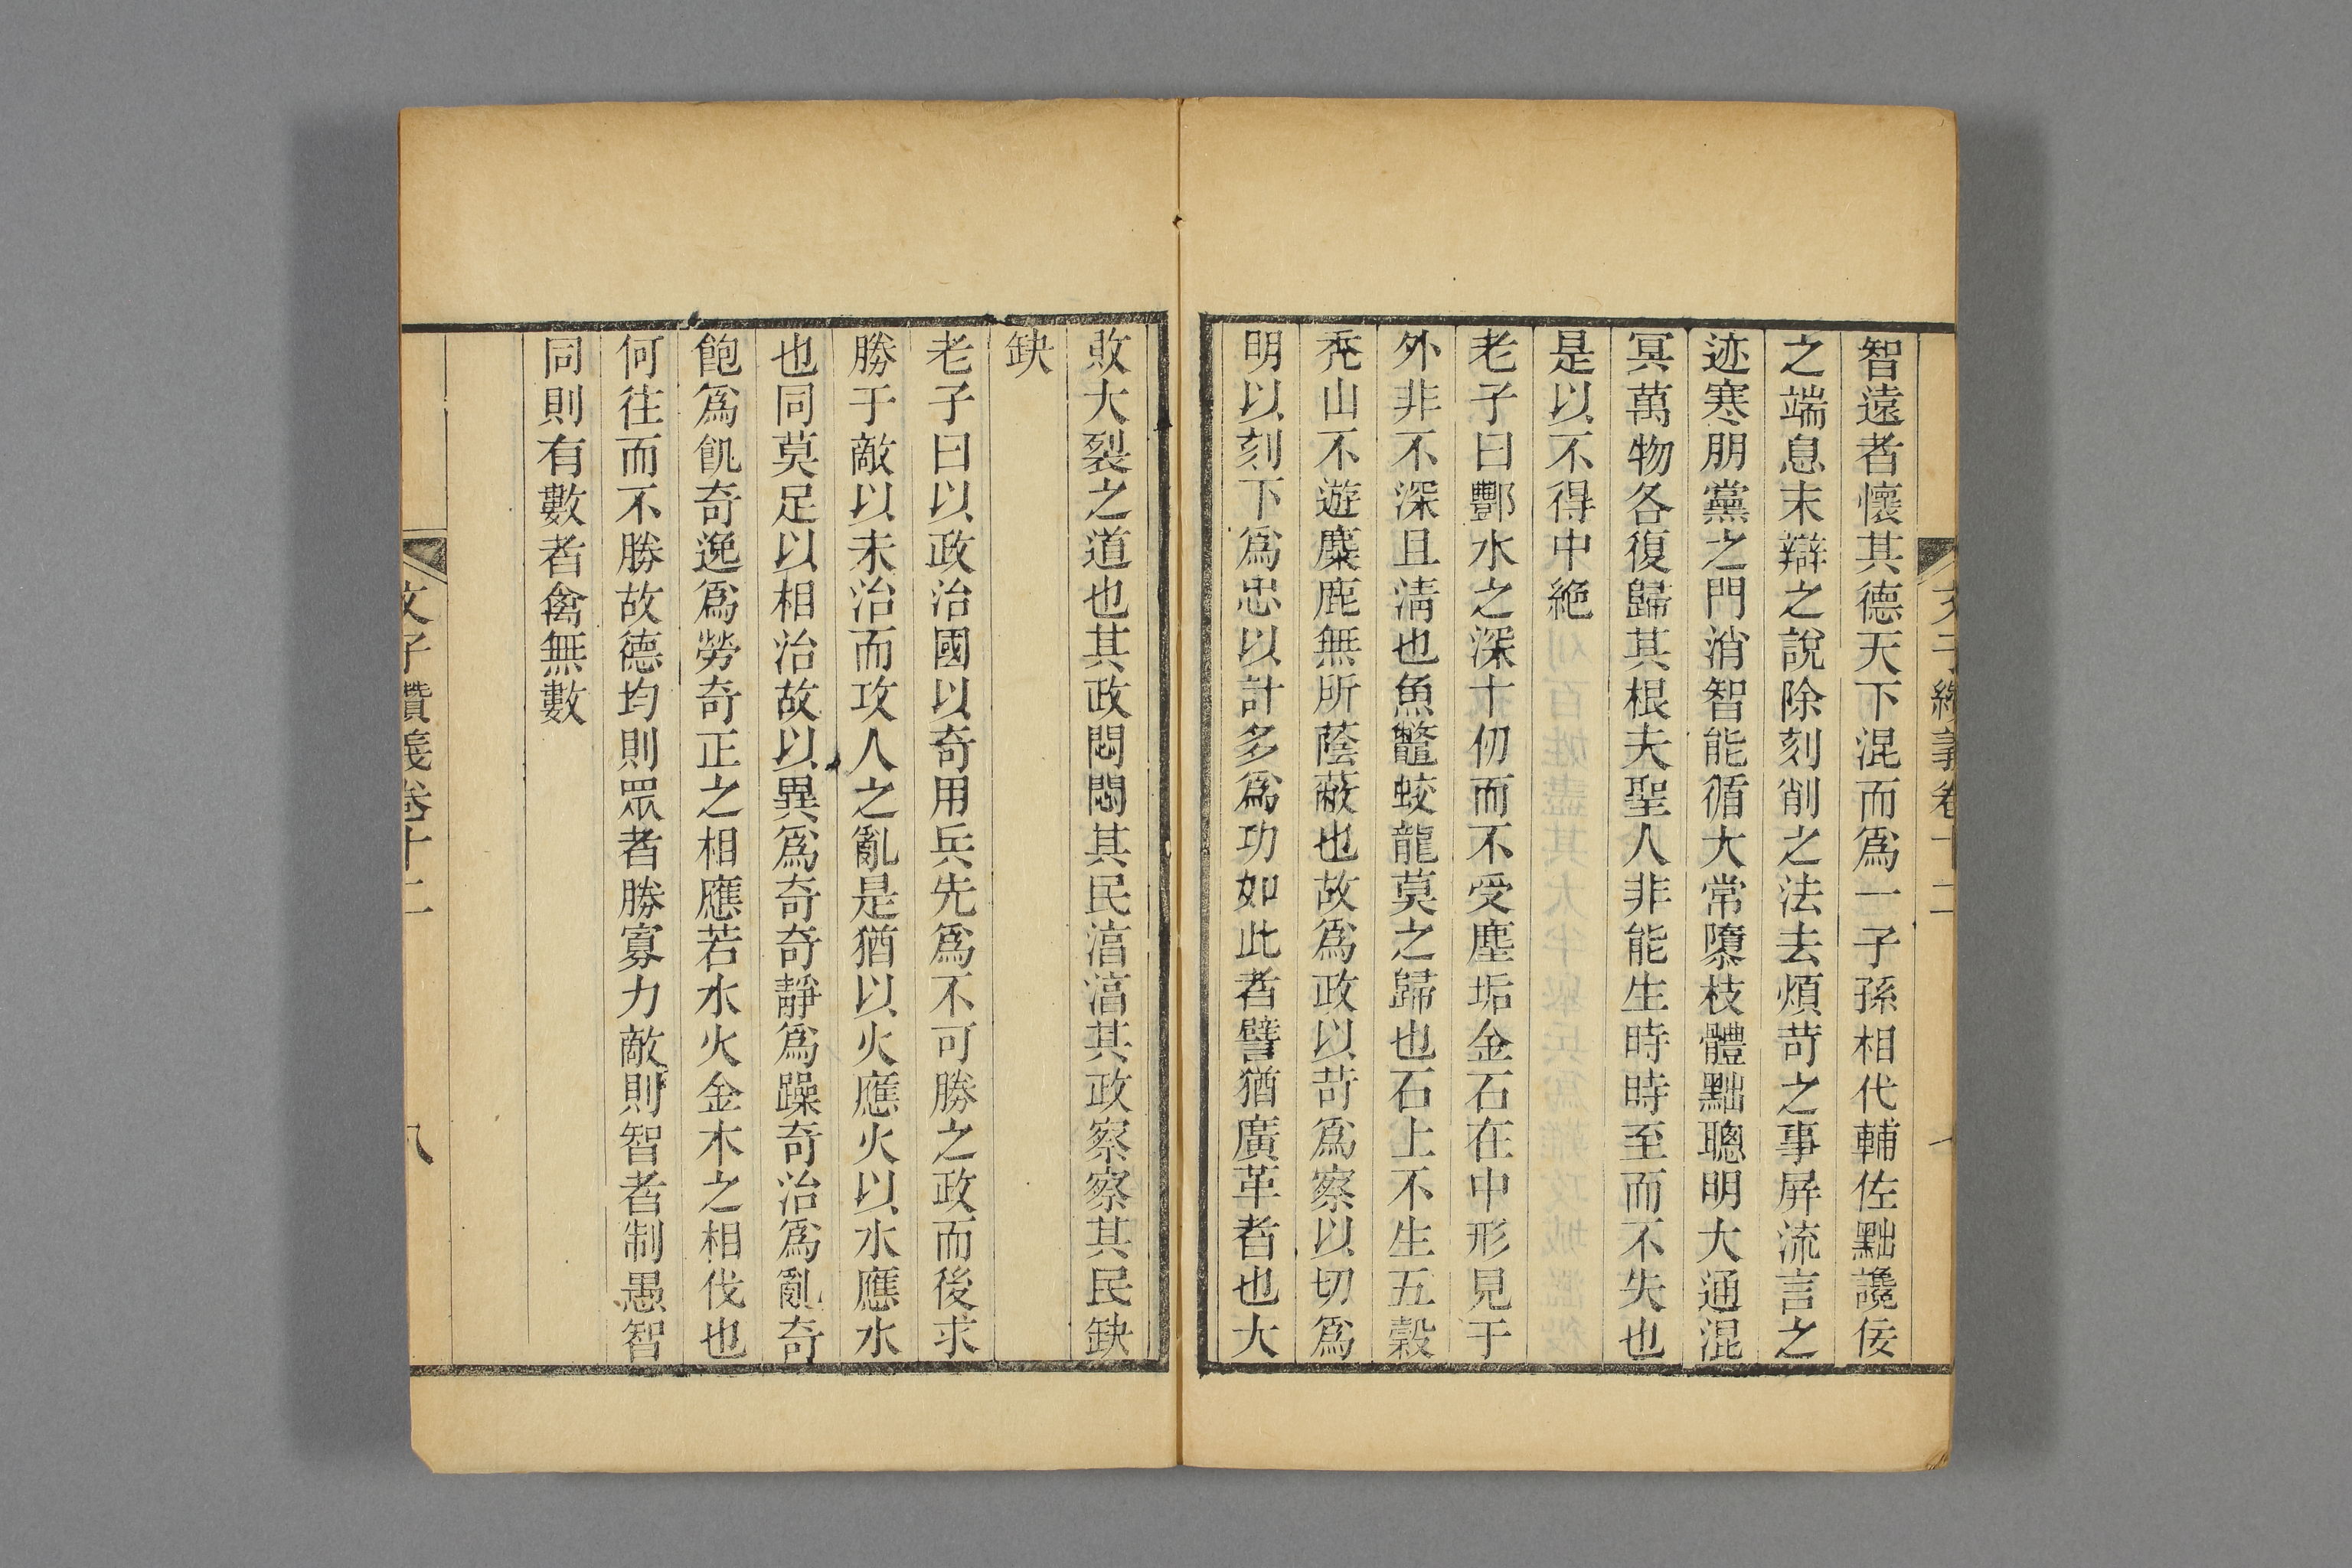 智遠者懷其德天下混而爲一子孫相代輔佐黜讒佞
之端息末辯之說除刻削之法去煩苛之事屏流言之
迹寒朋黨之門消智能循大常隳枝體黜聰明大通混
冥萬物各復歸其根夫聖人非能生時時至而不失也
是以不得中絶
老子曰酆水之深十仞而不受塵垢金石在中形見于
外非不深且淸也魚鼈蛟龍莫之歸也石上不生五穀
禿山不遊麋鹿無所蔭蔽也故爲政以苛爲察以切爲
明以刻下爲忠以計多爲功如此者譬猶廣革者也大
敗大裂之道也其政悶悶其民湻湻其政察察其民缺
缺
老子曰以政治國以奇用兵先爲不可勝之政而後求
勝于敵以未治而攻人之亂是猶以火應火以水應水
也同莫足以相治故以異爲奇奇靜爲躁奇治爲亂奇
飽爲飢奇逸爲勞奇正之相應若水火金木之相伐也
何往而不勝故德均則眾者勝寡力敵則智者制愚智
同則有數者禽無數
文子纘義卷十二
八